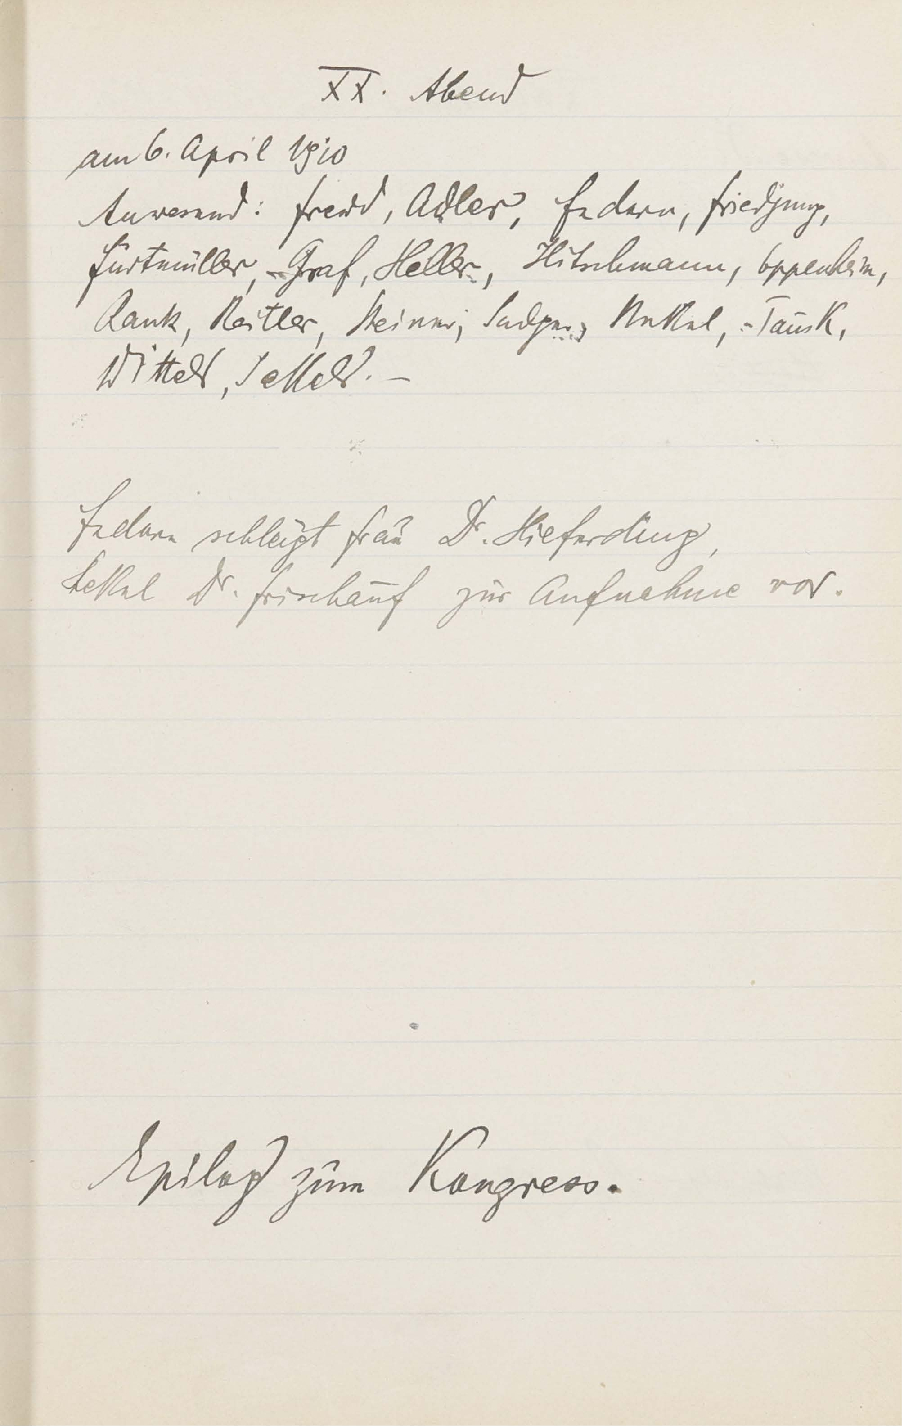 XX. Abend
am 6. April 1910
Anwesend: Freud, Adler, Federn, Friedjung,
Furtmüller, Graf, Heller, Hitschmann, Oppenheim,
Rank, Reitler, Steiner, Sadger, Stekel, Tausk,
Wittels, Jekels. –
Federn schlägt Frau Dr. Hilferding,
Stekel Dr. Frischauf zur Aufnahme vor.
Epilog zum Kongress.